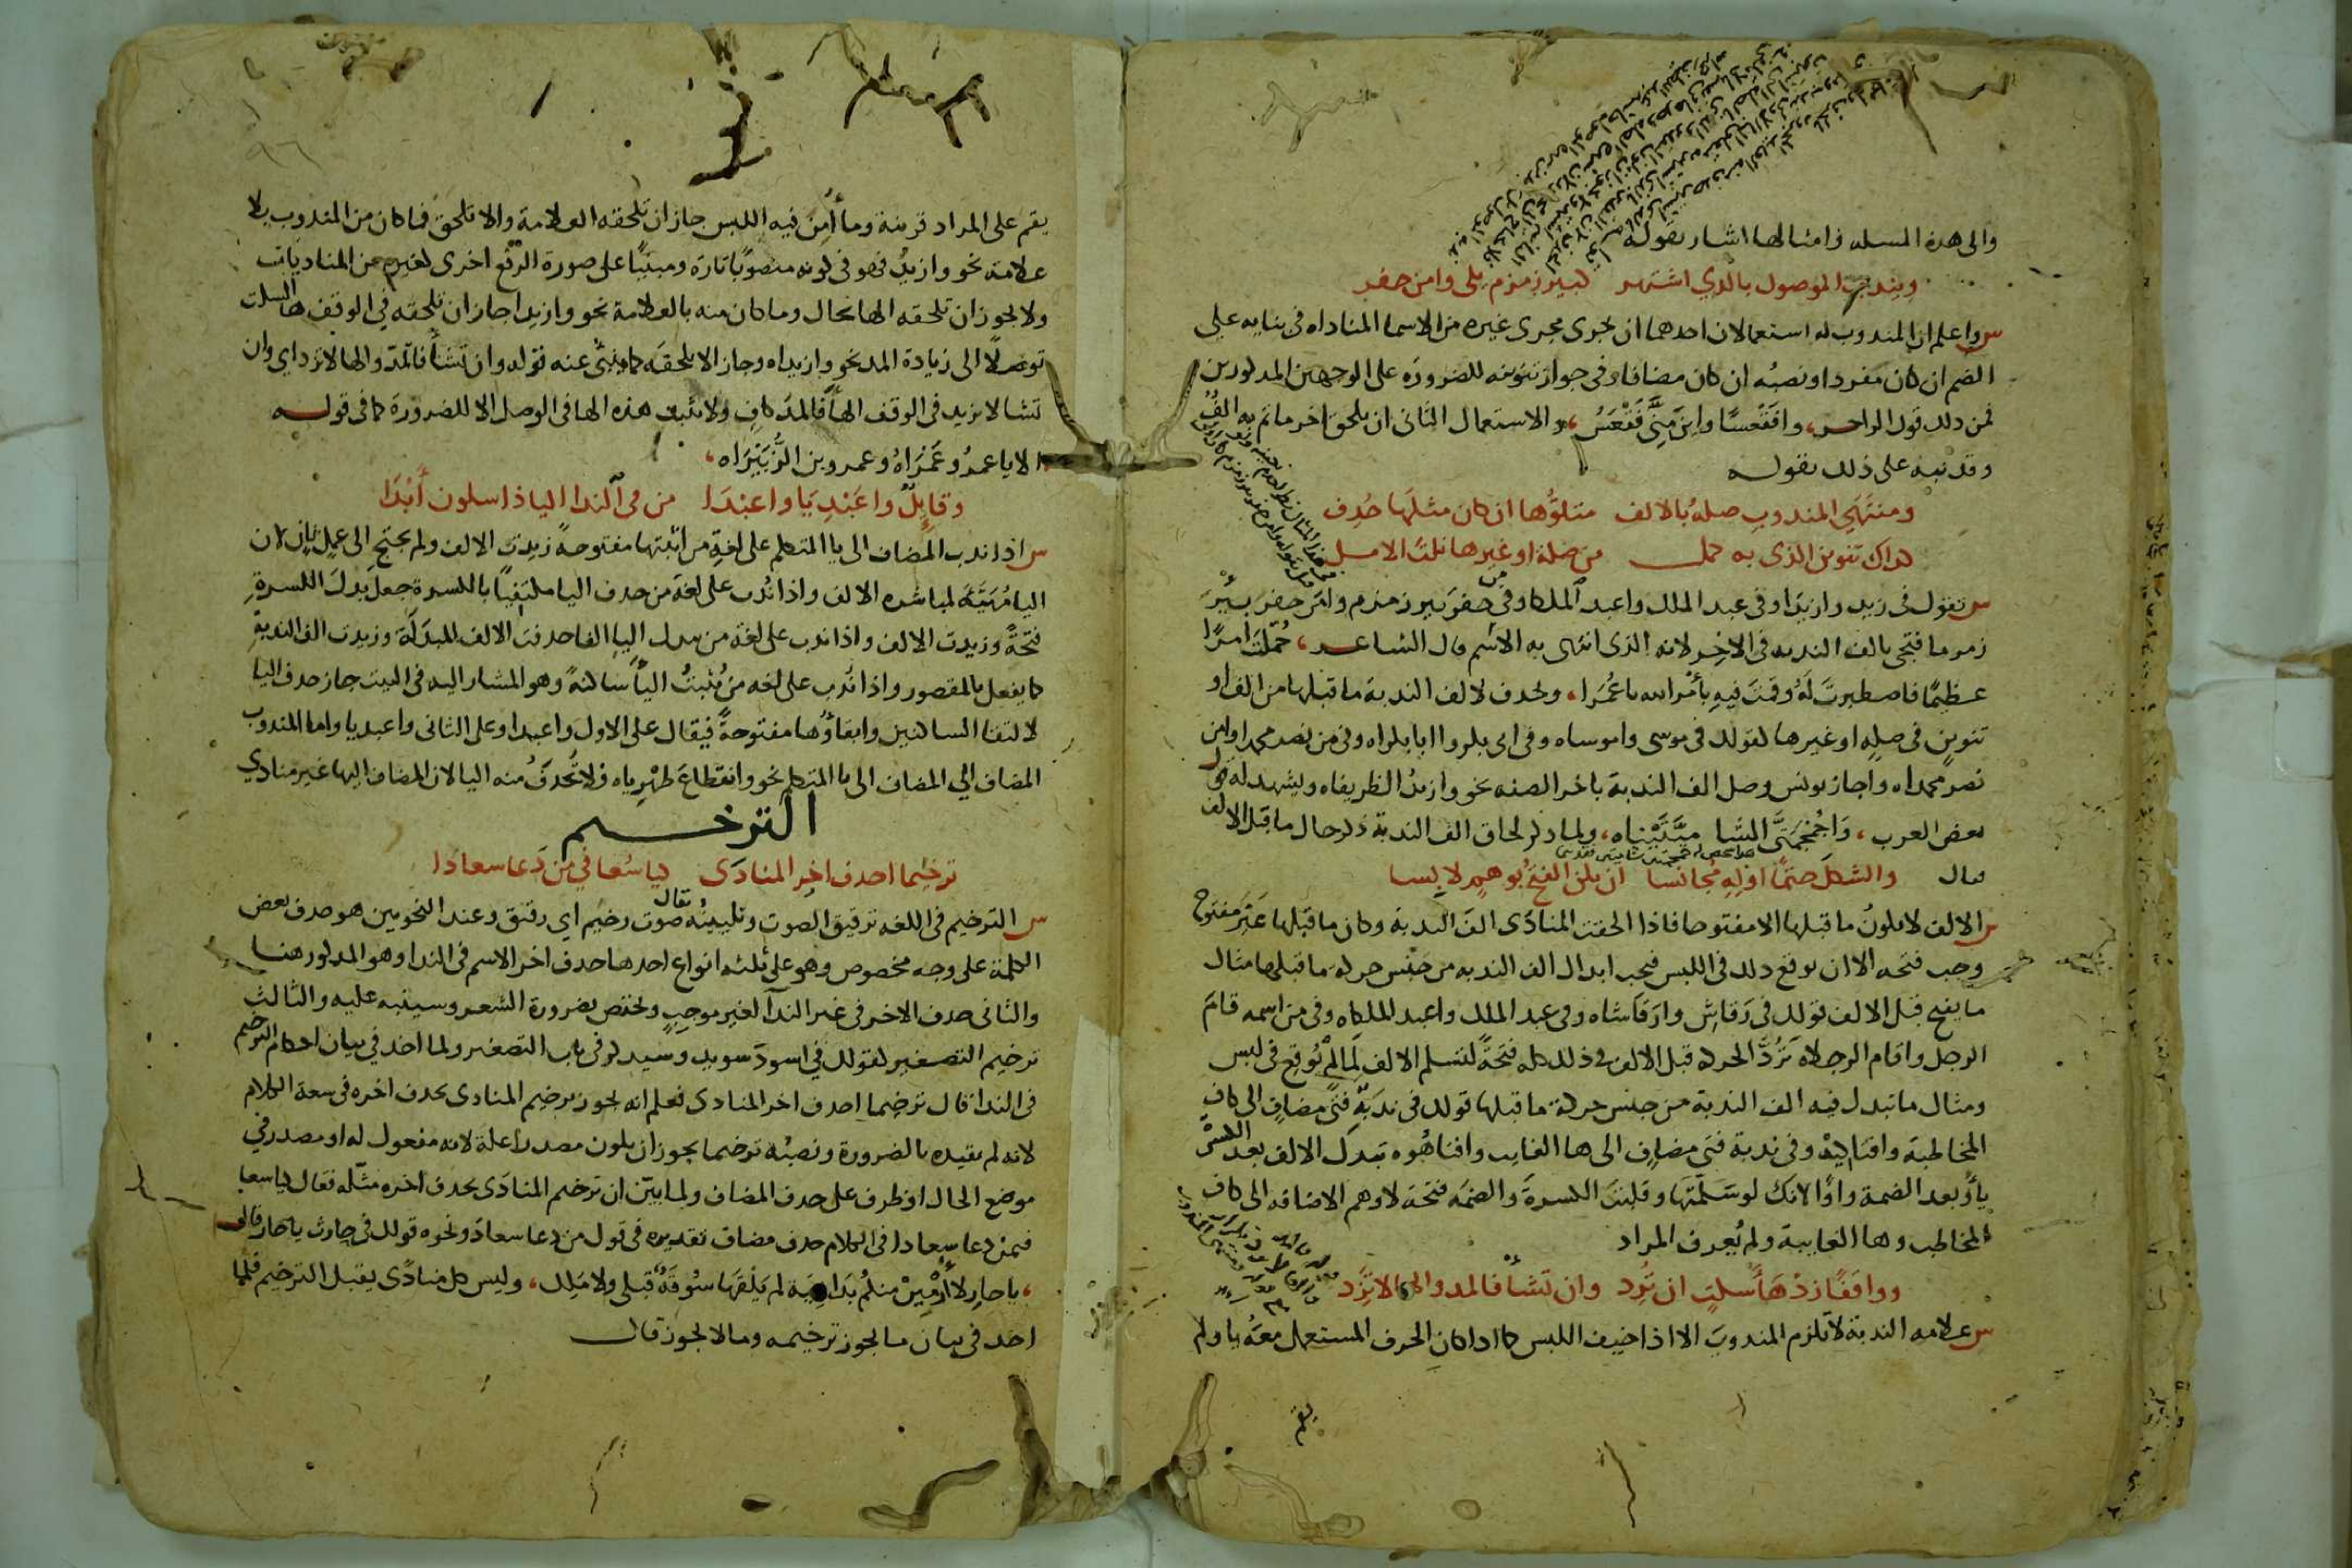 والى هذه المسله وامثالها اشار بقوله
ويندب الموصول بالذي اشتهر كبير زمزم يلي وامن حفر
س واعلم ان المندوب له استعمالان احدهما ان يجرى مجرى غيره من الاسما المناداه فى بنايه على
الضم ان كان مفردا ونصبه ان كان مضافا وفى جواز تنوينه للضرورة على الوجهين المذكورين
فمن ذلك قول الراجز، وافَقْعَسًا واين مِنِّي فَقْعَسُ، والاستعمال الثانى ان يلحق اخر ما تم به الفٌ
وقد نبه على ذلك بقوله
ومنتهى المندوب صله بالالف متلوُّها ان كان مثلها حُذِف
كذاك تنوين الذى به كمل من صلة او غيرها نلت الامل
س تقول فى زيد وازيدا وفى عبد الملك واعبد الملكا وفى من حفر بير زمزم وامن حفر بيرَ
زمزما فتجى بالف الندبه فى الاخِر لانه الذى انتهى به الاسم قال الشاعر، حُمِّلتَ امرًا
عظيمًا فاصطبرتَ لَهُ وقمتَ فيه بأمر الله يا عُمَرا، وتحذف لالف الندبة ما قبلها من الف او
تنوين فى صلةٍ او غيرها لقولك فى موسى واموساه وفى ابى بكر وا ابا بكراه وفى من نصر محمدا وامن
نصر محمداه واجاز يونس وصل الف الندبة باخر الصفه نحو وازيدُ الظريفاه ويشهد له قول
بعض العرب، وَاجُمْجُمَتَيَّ الشاميَّتَيْناه، ولما ذكر لحاق الف الندبة ذكر حال ما قبل الالف
فقال والشكلَ حتمًا اوْلِهِ مُجانسا ان يكن الفتحُ بوهمٍ لابسا
س الالف لا يكونُ ما قبلها الا مفتوحا فاذا الحقت المنادَى الفَ الندبة وكان ما قبلها غيرَ مفتوح
وجب فتحه الا ان يوقع ذلك فى اللبس فيجب ابدال الف الندبه من جنس حركة ما قبلها مثال
ما يفتح قبل الالف قولك فى رَقاشِ وارَقاشاه وفى عبد الملك واعبد الملكاه وفى من اسمه قامَ
الرجل واقام الرجلاه تَرُدُّ الحركة قبل الالف فى ذلك كله فتحةً لتسلم الالف لَمّا لم تُوقع فى لبس
ومثال ما تبدل فيه الف الندبة من جنس حركة ما قبلها قولك فى ندبة فتى مضافٍ الى كاف
المخاطبة وافتاكيهْ وفى ندبة فتى مضافٍ الى ها الغايب وافتاهُوه تبدل الالف بعد الكسر
ياءً وبعد الضمة واوًا لانك لو سَلَّمتَها وقلبتَ الكسرةَ والضمَّه فتحة لاوهم الاضافه الى كاف
المخاطب وها الغايبة ولم يُعرف المراد
وواقفًا زدْ هَاءَ سكتٍ ان تُرِد وان تَشأ فالمد والها لا تَزِد
س علامه الندبة لا تلزم المندوبَ الا اذا خيف اللبس كما اذا كان الحرف المستعمل معهُ يا ولم
يقم
٩٦
يقم على المراد قرينة وما أُمِنَ فيه اللبس جاز ان تلحقه العلامة والا تلحقَ فما كان من المندوب بلا
علامة نحو وازيدُ فهو فى كونه منصوبًا تارة ومبنيًا على صورة الرفع اخرى كغيره من المناديات
ولا يجوز ان تلحقه الها بحال وما كان منه بالعلامة نحو وازيدا جاز ان تلحقه فى الوقف ها السكت
توصلًا الى زيادة المد نحو وازيداه وجاز الا تلحقه كما ينبئ عنه قوله وان تشأ فالمد والها لا تزد اي وان
تشا لا تزيد فى الوقف الهاء فالمد كافٍ ولا تثبت هذه الها فى الوصل الا للضرورة كما فى قوله
الا يا عمرُو عَمْرَاهُ وعمرو بن الزُّبَيْرَاه،
وقايِلٌ واعَبْدِيَا واعبْدَا من فى الندا اليا ذا سكون أَبْدَا
س اذا ندب المضاف الى يا المتكلم على لغةِ من اثبتها مفتوحةً زيدت الالف ولم يحتج الى عمل ثانٍ لان
اليا مُهَيّئة لمباشره الالف واذا نُدب على لغة من حذف اليا مكتفيًا بالكسرة جعل بدلَ الكسرةِ
فتحةً وزيدت الالف واذا ندب على لغة من يبدل اليا الفا حذفت الالف المبدَلَة وزيدت الف الندبة
كما يفعل بالمقصور واذا نُدب على لغه من يُثبتُ الياءَ ساكنةً وهو المشار اليه فى البيت جاز حذف اليا
لالتقا الساكنين وابقاؤُها مفتوحةً فيقال على الاول واعبدا وعلى الثانى واعبديا واما المندوب
المضاف الي المضاف الى يا المتكلم نحو وانقطاعَ ظهرِياه فلا تُحذفُ منه اليا لان المضاف اليها غير منادي
الترخيم
ترخيما احذف اخِر المنادَى كيا سُعا في من دَعا سعادا
س الترخيم فى اللغه ترقيق الصوت وتليينُه يقال صوت رخيم اي رقيق وعند النحويين هو حذف بعض
الكلمة على وجه مخصوص وهو على ثلثه انواع احدها حذف اخر الاسم فى الندا وهو المذكور هنا
والثانى حذف الاخر فى غير الندآ لغير موجبٍ ويختص بضرورة الشعر وسينبه عليه والثالث
ترخيم التصغير لقولك في اسودَ سويد وسيذكر فى باب التصغير ولما اخذ في بيان احكام الترخيم
فى الندا قال ترخيما احذف اخر المنادى فعلم انه يجوز ترخيم المنادى بحذف اخره فى سعة الكلام
لانه لم يقيده بالضرورة ونصبُه ترخيما يجوز ان يكون مصدرا علة لانه مفعول له او مصدر في
موضع الحال او ظرف على حذف المضاف ولما بيّن ان ترخيم المنادَى بحذف اخره مثّله فقال كيا سعا
فيمن دعا سعادا فى الكلام حذف مضاف تقديره فى قول من دعا سعادَ ونحوه قولك فى حارث يا حار قال
، يا حارِ لا أُرْمَيَنْ منكُم بداهِيَة لم يَلْقَها سُوقَةٌ قبلى ولا مَلِك، وليس كل منادًى يقبل الترخيم فلما
اخذ فى بيان ما يجوز ترخيمه وما لا يجوز قال